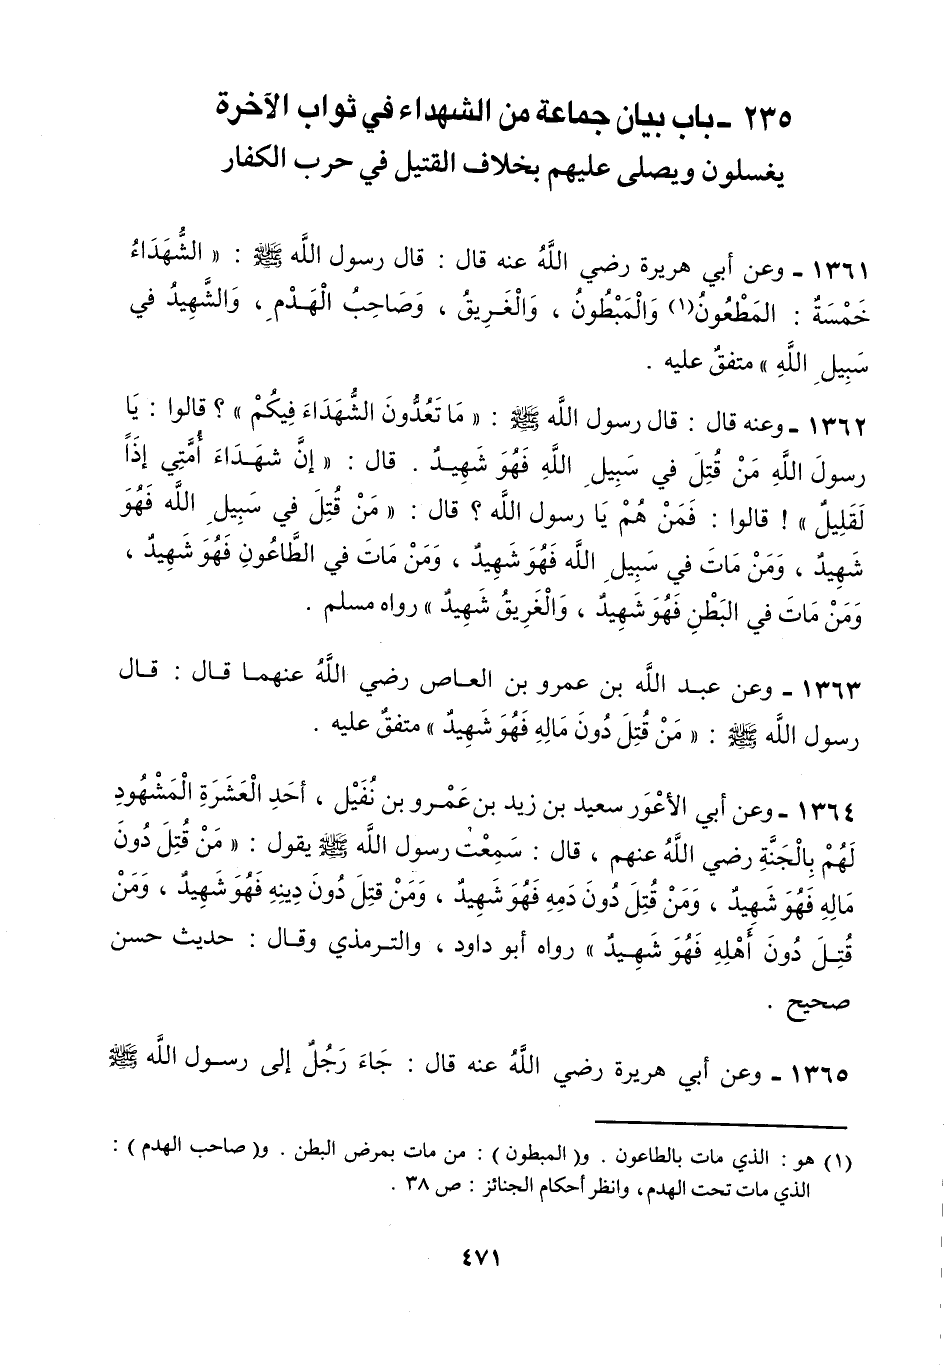 ٢٣٥ ـ باب بيان جماعة من الشهداء في ثواب الآخرة
يغسلون ويصلى عليهم بخلاف القتيل في حرب الكفار
١٣٦١ ـ وعن أبي هريرة رضي اللَّهُ عنه قال : قال رسول اللَّه ﷺ : « الشُّهَدَاءُ
خَمْسَةٌ : المَطْعُونُ(١) وَالْمَبْطُونُ ، وَالْغَرِيقُ ، وَصَاحِبُ الْهَدْمِ ، وَالشَّهِيدُ في
سَبِيلِ اللَّهِ » متفقٌ عليه .
١٣٦٢ ـ وعنه قال : قال رسول اللَّه ﷺ : « مَا تَعُدُّونَ الشُّهَدَاءَ فِيكُمْ » ؟ قالوا : يَا
رسولَ اللَّهِ مَنْ قُتِلَ في سَبِيلِ اللَّهِ فَهُوَ شَهِيدٌ . قال : « إنَّ شُهَدَاءَ أُمَّتِي إذَاً
لَقَلِيلٌ » ! قالوا : فَمَنْ هُمْ يَا رسول اللَّه ؟ قال : « مَنْ قُتِلَ في سَبِيلِ اللَّه فَهُوَ
شَهِيدٌ ، وَمَنْ مَاتَ في سَبِيلِ اللَّه فَهُوَ شَهِيدٌ ، وَمَنْ مَاتَ في الطَّاعُونِ فَهُوَ شَهِيدٌ ،
وَمَنْ مَاتَ في البَطْنِ فَهُوَ شَهِيدٌ ، وَالْغَرِيقُ شَهِيدٌ » رواه مسلم .
١٣٦٣ ـ وعن عبد اللَّه بن عمرو بن العاص رضي اللَّهُ عنهما قال : قال
رسول اللَّه ﷺ : « مَنْ قُتِلَ دُونَ مَالِهِ فَهُوَ شَهِيدٌ » متفقٌ عليه .
١٣٦٤ ـ وعن أبي الأعْوَر سعيد بن زيد بن عَمْرو بن نُفَيْل ، أحَدِ الْعَشَرَةِ الْمَشْهُودِ
لَهُمْ بِالْجَنَّةِ رضي اللَّهُ عنهم ، قال : سَمِعْت رسول اللَّه ﷺ يقول : « مَنْ قُتِلَ دُونَ
مَالِهِ فَهُوَ شَهِيدٌ ، وَمَنْ قُتِلَ دُونَ دَمِهِ فَهُوَ شَهِيدٌ ، وَمَنْ قتِلَ دُونَ دِينِهِ فَهُوَ شَهِيدٌ ، وَمَنْ
قُتِلَ دُونَ أَهْلِهِ فَهُوَ شَهِيدٌ » رواه أبو داود ، والترمذي وقال : حديث حسن
صحيح .
١٣٦٥ ـ وعن أبي هريرة رضي اللَّهُ عنه قال : جَاءَ رَجُلٌ إلى رسول اللَّه ﷺ
(١) هو : الذي مات بالطاعون . و( المبطون ) : من مات بمرض البطن . و( صاحب الهدم ) :
الذي مات تحت الهدم ، وانظر أحكام الجنائز : ص ٣٨ .
٤٧١